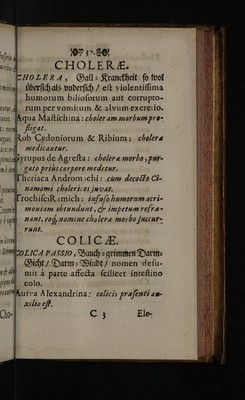 37.
CHOLERÆ.
CHOLERA, Gall-Kranckheit so wol
übersich als undersich / est violentissima
humorum biliosorum aut corrupto-
rum per vomitum & alvum excretio.
Aqua Mastichina: choleram morbum pro-
fligat.
Rob Cydoniorum & Ribium: cholera
medicantur.
Syrupus de Agresta: cholera morbo, pur-
gato prius corpore medetur.
Theriaca Andromachi: cum decocto Ci-
namomi cholericos juvat.
Trochisci Ramich: infuso humorum acri-
moniam obtundunt, & impetum refræ-
nant, eoq́; nomine choleræ morbo succur-
runt.
COLICÆ.
COLICA PASSIO, Bauch-grimmen Darm-
Gicht / Darm-Windt / nomen desu-
mit à parte affecta scilicet intestino
colo.
Aurea Alexandrina: colicis præsenti au-
xilio est.
C 3 Ele-
Cho-